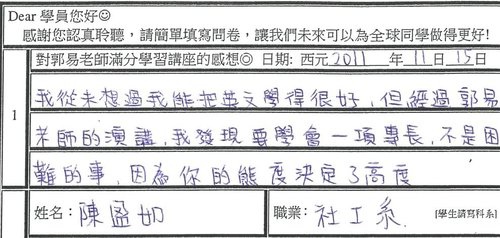 Dear 學員您好☺
感謝您認真聆聽，請簡單填寫問卷，讓我們未來可以為全球同學做得更好!
對郭易老師滿分學習講座的感想◎ 日期: 西元 2011 年 11 日 15 日
我從未想過我能把英文學得很好，但經過郭易
1
老師的演講，我發現要學會一項專長，不是困
難的事，因為你的態度決定了高度
姓名：陳盈如 職業：社工系 [學生請寫科系]